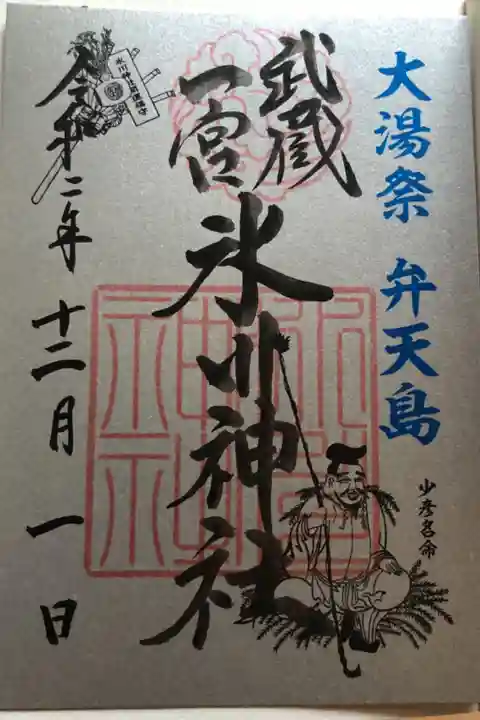 大湯祭 弁天島
少彦名命
武蔵
一宮
氷川神社
令和二年 十二月 一日